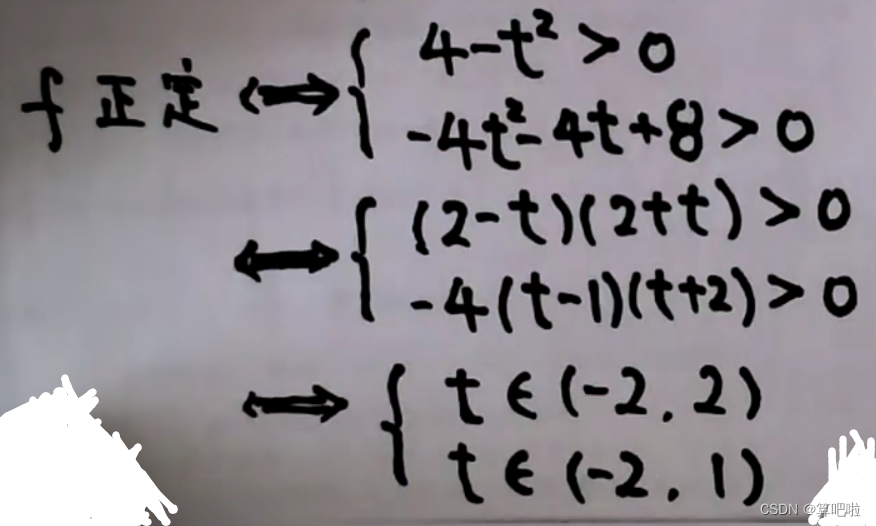 f 正定 ⟺ { 4-t² > 0
-4t²-4t+8 > 0
⟺ { (2-t)(2+t) > 0
-4(t-1)(t+2) > 0
⟺ { t ∈ (-2, 2)
t ∈ (-2, 1)
CSDN @算吧啦